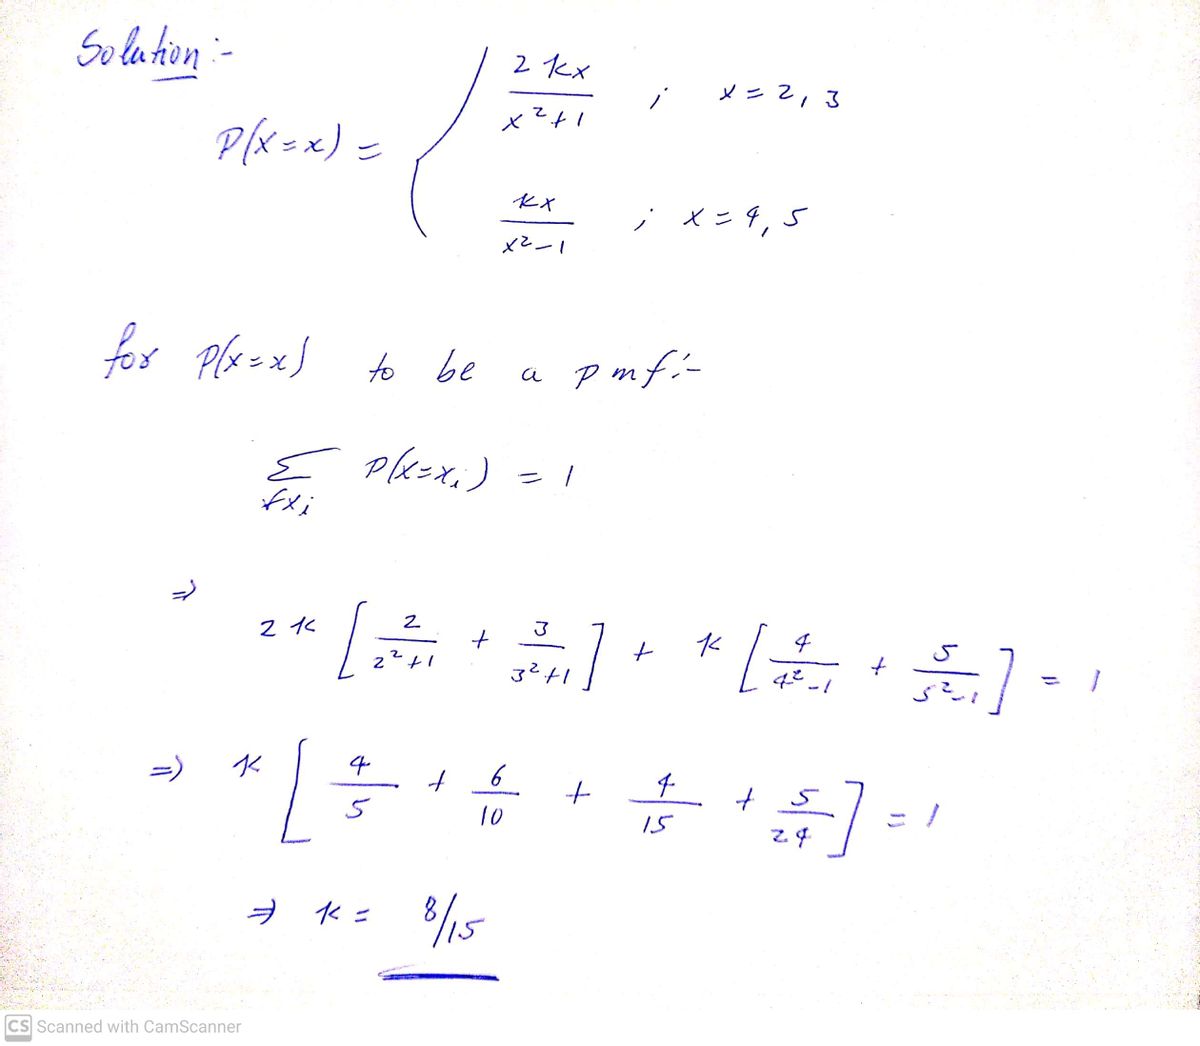 Solution :-
P(X=x) = { 2kx / x²+1 ; x = 2, 3
kx / x²-1 ; x = 4, 5
for P(X=x) to be a pmf :-
Σ P(X=xᵢ) = 1
∀xᵢ
⇒ 2k [ 2 / 2²+1 + 3 / 3²+1 ] + k [ 4 / 4²-1 + 5 / 5²-1 ] = 1
⇒ k [ 4/5 + 6/10 + 4/15 + 5/24 ] = 1
⇒ k = 8/15
CS Scanned with CamScanner